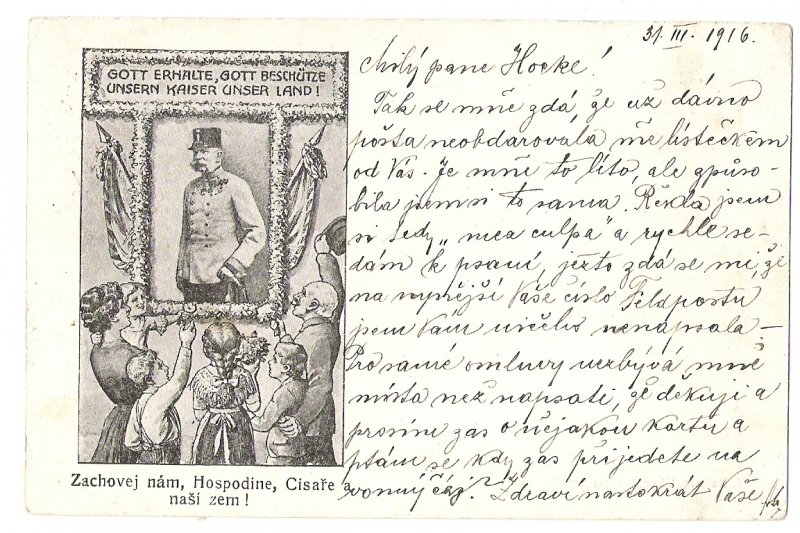 31. III. 1916.
GOTT ERHALTE, GOTT BESCHÜTZE
UNSERN KAISER UNSER LAND!
Milý pane Hocke!
Tak se mně zdá, že už dávno
pošta neobdarovala mě lístečkem
od Vás. Je mně to líto, ale způso-
bila jsem si to sama. Řekla jsem
si tedy „mea culpa" a rychle se-
dám k psaní, ježto zdá se mi, že
na nynější Vaše číslo Feldpostu
jsem Vám ničeho nenapsala –
Pro samé omluvy nezbývá mně
místa než napsati, že děkuji a
prosím zas o nějakou kartu a
ptám se kdy zas přijedete na
vonný čaj. Zdraví nastokrát Vaše
Zachovej nám, Hospodine, Císaře a
naší zem!